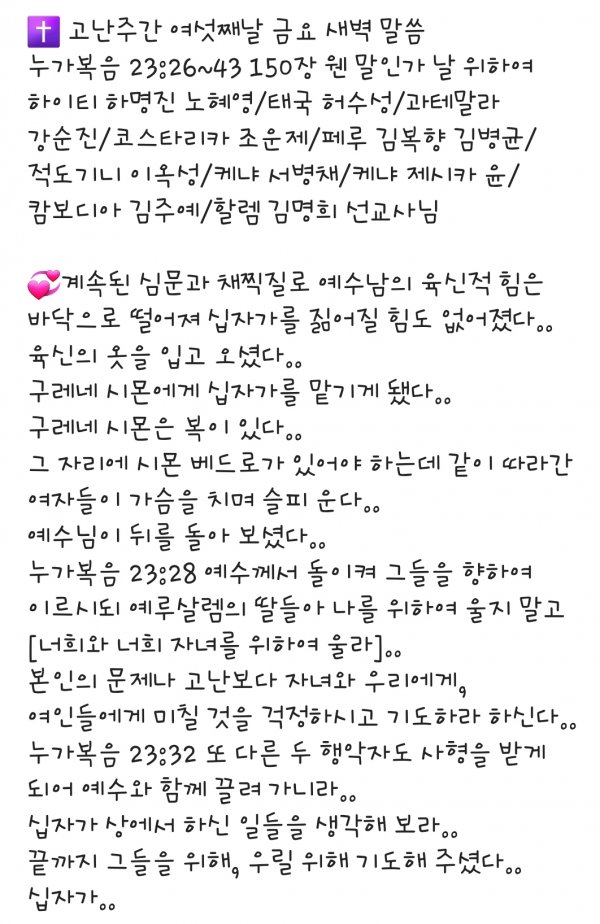 ✝️ 고난주간 여섯째날 금요 새벽 말씀
누가복음 23:26~43 150장 웬 말인가 날 위하여
하이티 하명진 노혜영/태국 허수성/과테말라
강순진/코스타리카 조운제/페루 김복향 김병균/
적도기니 이옥성/케냐 서병채/케냐 제시카 윤/
캄보디아 김주예/할렘 김명희 선교사님
💞계속된 심문과 채찍질로 예수남의 육신적 힘은
바닥으로 떨어져 십자가를 짊어질 힘도 없어졌다..
육신의 옷을 입고 오셨다..
구레네 시몬에게 십자가를 맡기게 됐다..
구레네 시몬은 복이 있다..
그 자리에 시몬 베드로가 있어야 하는데 같이 따라간
여자들이 가슴을 치며 슬피 운다..
예수님이 뒤를 돌아 보셨다..
누가복음 23:28 예수께서 돌이켜 그들을 향하여
이르시되 예루살렘의 딸들아 나를 위하여 울지 말고
[너희와 너희 자녀를 위하여 울라]..
본인의 문제나 고난보다 자녀와 우리에게,
여인들에게 미칠 것을 걱정하시고 기도하라 하신다..
누가복음 23:32 또 다른 두 행악자도 사형을 받게
되어 예수와 함께 끌려 가니라..
십자가 상에서 하신 일들을 생각해 보라..
끝까지 그들을 위해, 우릴 위해 기도해 주셨다..
십자가..